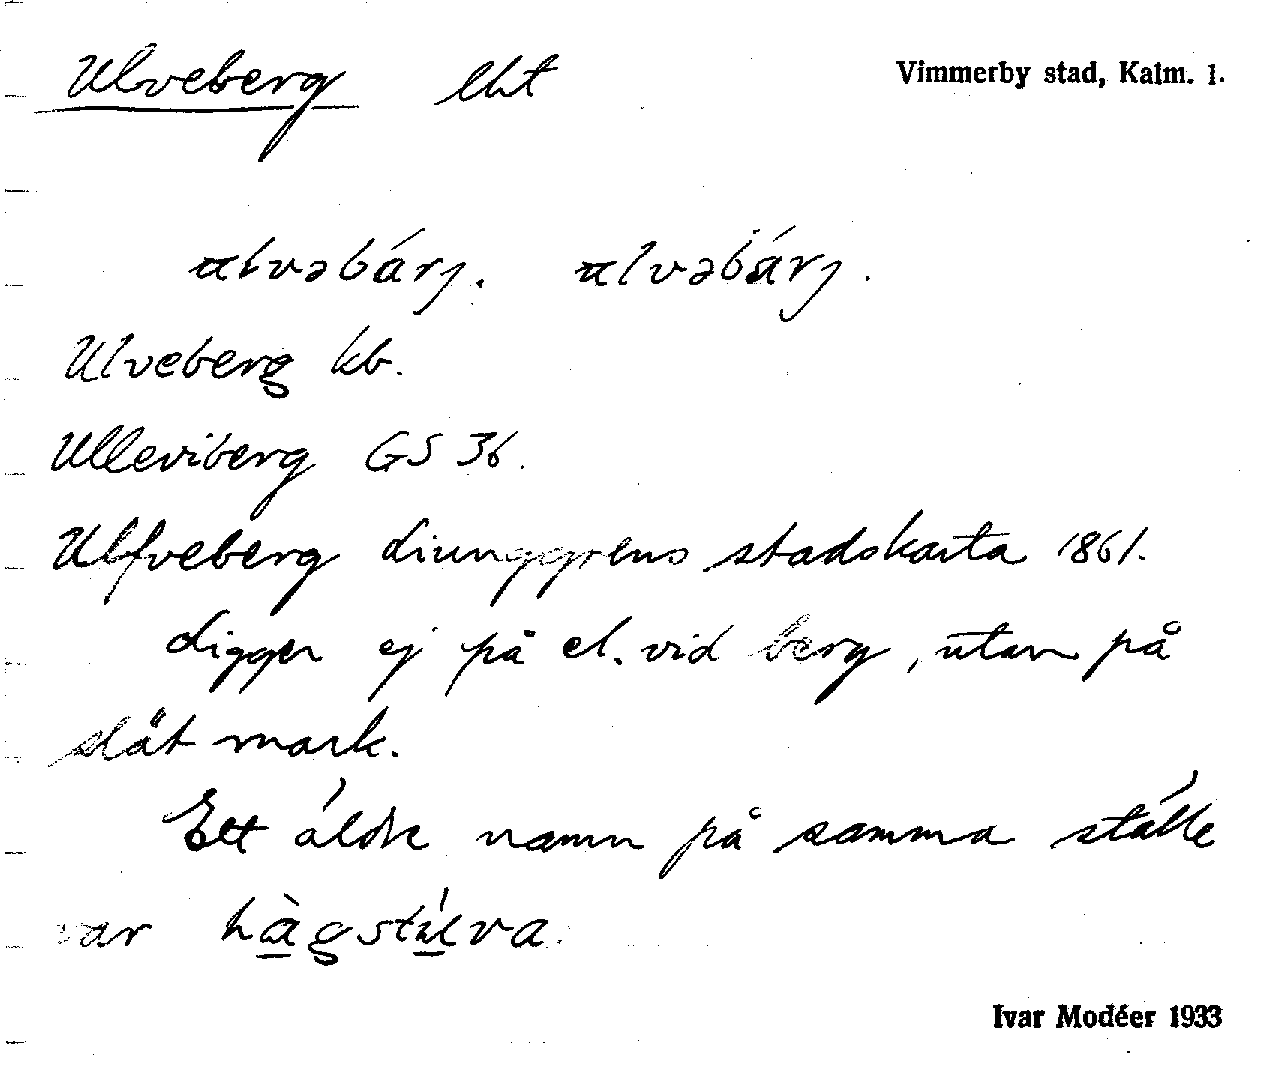 Ulveberg lht
Vimmerby stad, Kalm. l.
ulvəbárj. ulvəbä́rj.
Ulveberg kb.
Ulleviberg GS 36.
Ulfveberg Liunggrens stadskarta 1861.
Ligger ej på el. vid berg, utan på
slät mark.
Ett äldre namn på samma ställe
var hàgstúlva.
Ivar Modéer 1933